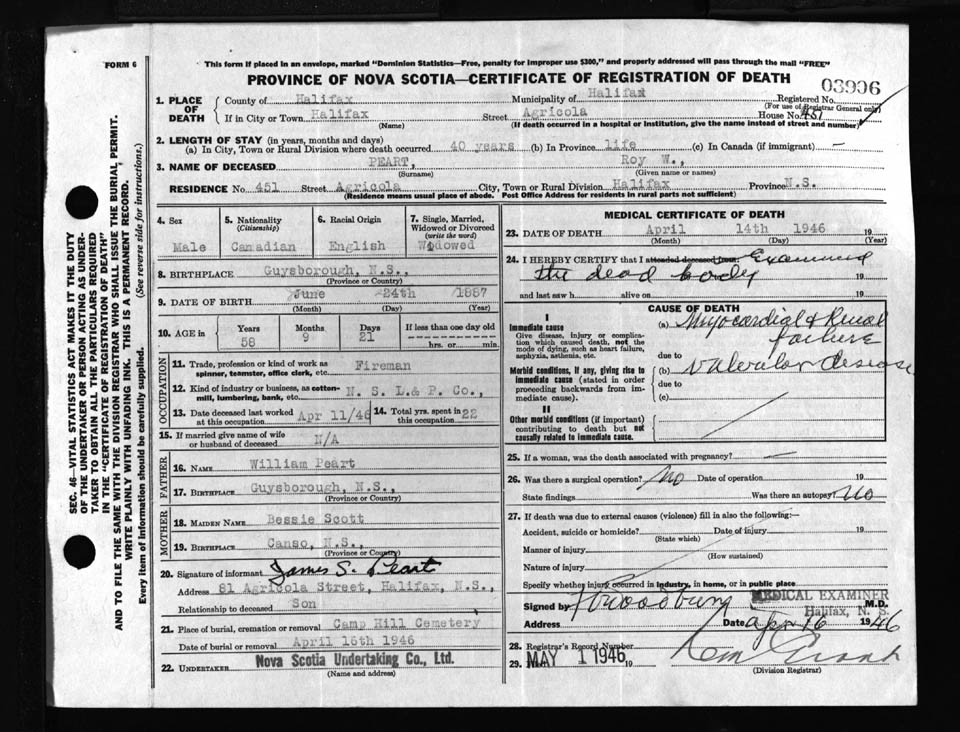 FORM 6
This form if placed in an envelope, marked "Dominion Statistics—Free, penalty for improper use $300," and properly addressed will pass through the mail "FREE"
PROVINCE OF NOVA SCOTIA—CERTIFICATE OF REGISTRATION OF DEATH
03996
1. PLACE OF DEATH
County of Halifax Municipality of Halifax Registered No.
(For use of Registrar General only)
If in City or Town Halifax Street Agricola House No. 451
(Name) (If death occurred in a hospital or Institution, give the name instead of street and number)
2. LENGTH OF STAY (in years, months and days)
(a) In City, Town or Rural Division where death occurred 40 years (b) In Province life (c) In Canada (if immigrant) —
3. NAME OF DECEASED PEART, Roy W.,
(Surname) (Given name or names)
RESIDENCE No. 451 Street Agricola City, Town or Rural Division Halifax Province N.S.
(Residence means usual place of abode. Post Office Address for residents in rural parts not sufficient)
4. Sex
Male
5. Nationality
(Citizenship)
Canadian
6. Racial Origin
English
7. Single, Married, Widowed or Divorced
(write the word)
Widowed
8. BIRTHPLACE Guysborough, N.S.,
(Province or Country)
9. DATE OF BIRTH June 24th 1887
(Month) (Day) (Year)
10. AGE in
Years Months Days If less than one day old
58 9 21 hrs. or min.
OCCUPATION
11. Trade, profession or kind of work as
spinner, teamster, office clerk, etc. Fireman
12. Kind of industry or business, as cotton-
mill, lumbering, bank, etc. N. S. L.& P. Co.,
13. Date deceased last worked
at this occupation Apr 11/46
14. Total yrs. spent in
this occupation 22
15. If married give name of wife
or husband of deceased N/A
FATHER
16. NAME William Peart
17. BIRTHPLACE Guysborough, N.S.,
(Province or Country)
MOTHER
18. MAIDEN NAME Bessie Scott
19. BIRTHPLACE Canso, N.S.,
(Province or Country)
20. Signature of informant James S. Peart
Address 81 Agricola Street, Halifax, N.S.,
Relationship to deceased Son
21. Place of burial, cremation or removal Camp Hill Cemetery
Date of burial or removal April 16th 1946
22. UNDERTAKER Nova Scotia Undertaking Co., Ltd.
(Name and address)
MEDICAL CERTIFICATE OF DEATH
23. DATE OF DEATH April 14th 1946 19
(Month) (Day) (Year)
24. I HEREBY CERTIFY that I attended deceased from Examined
the dead body 19
and last saw h alive on 19
CAUSE OF DEATH
I
Immediate cause
Give disease, injury or complica-
tion which caused death, not the
mode of dying, such as heart failure,
asphyxia, asthenia, etc.
(a) Myocardial & Renal
failure
due to
Morbid conditions, if any, giving rise to
immediate cause (stated in order
proceeding backwards from im-
mediate cause).
(b) Valvular disease
due to
(c)
II
Other morbid conditions (if important)
contributing to death but not
causally related to immediate cause.
25. If a woman, was the death associated with pregnancy? —
26. Was there a surgical operation? No Date of operation 19
State findings Was there an autopsy? No
27. If death was due to external causes (violence) fill in also the following:—
Accident, suicide or homicide? Date of injury 19
(State which)
Manner of injury
(How sustained)
Nature of injury
Specify whether injury occurred in industry, in home, or in public place
MEDICAL EXAMINER
Halifax, N. S.
Signed by M.D.
Address Date Apr 16 1946
28. Registrar's Record Number
29. MAY 1 1946 19
(Division Registrar)
SEC. 46—VITAL STATISTICS ACT MAKES IT THE DUTY
OF THE UNDERTAKER OR PERSON ACTING AS UNDER-
TAKER TO OBTAIN ALL THE PARTICULARS REQUIRED
IN THE "CERTIFICATE OF REGISTRATION OF DEATH"
AND TO FILE THE SAME WITH THE DIVISION REGISTRAR WHO SHALL ISSUE THE BURIAL PERMIT.
WRITE PLAINLY WITH UNFADING INK. THIS IS A PERMANENT RECORD.
Every item of information should be carefully supplied. (See reverse side for instructions.)